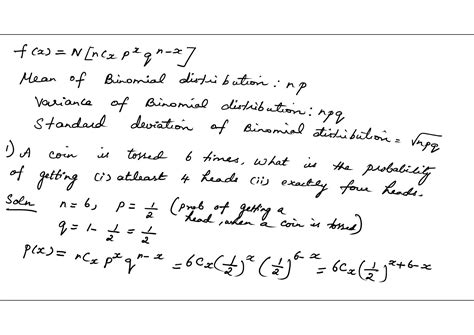 f(x) = N[nCx p^x q^n-x]
Mean of Binomial distribution : np
Variance of Binomial distribution : npq
Standard deviation of Binomial distribution = √npq
1) A coin is tossed 6 times, what is the probability
of getting (i) atleast 4 heads (ii) exactly four heads.
Soln n = 6, p = 1/2 (prob of getting a
head, when a coin is tossed)
q = 1 - 1/2 = 1/2
p(x) = nCx p^x q^n-x = 6Cx (1/2)^x (1/2)^6-x = 6Cx (1/2)^x+6-x